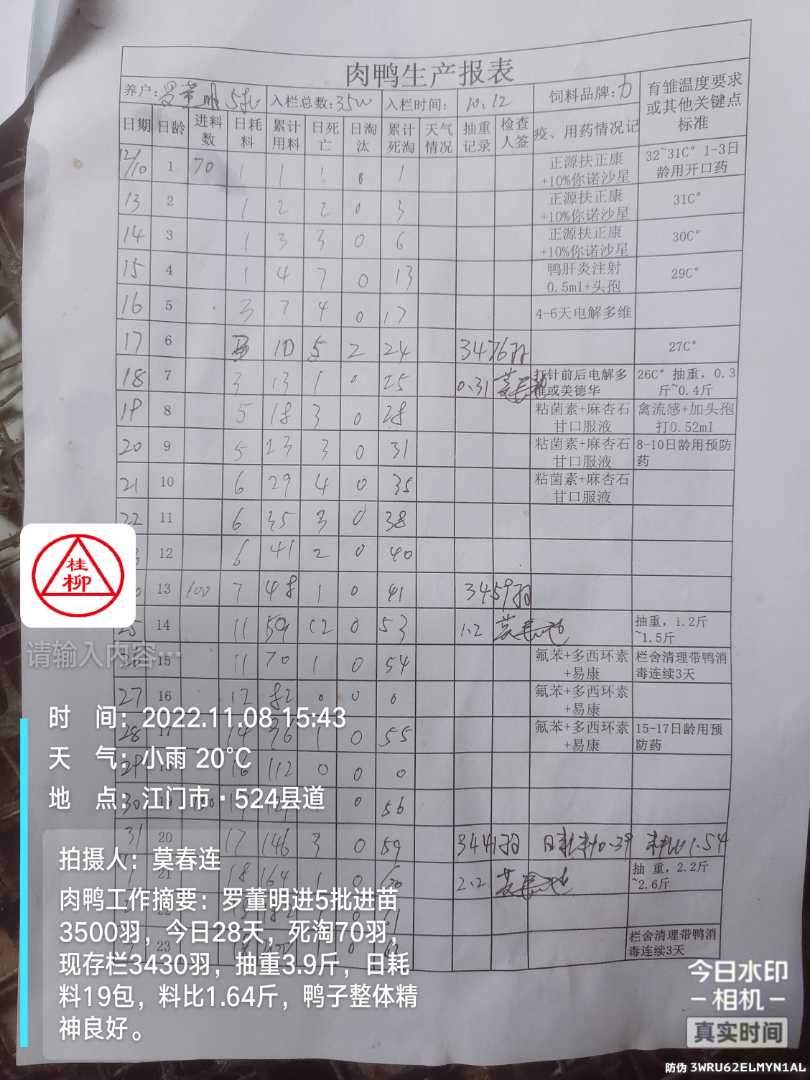 肉鸭生产报表
养户: 罗董明 5批 入栏总数:3500 入栏时间: 10.12 饲料品牌: 力 育雏温度要求或其他关键点标准
日期 日龄 进料数 日耗料 累计用料 日死亡 日淘汰 累计死淘 天气情况 抽重记录 检查人签 疫、用药情况记
12/10 1 70 1 1 1 0 1 正源扶正康+10%你诺沙星 32~31C° 1-3日龄用开口药
13 2 1 2 2 0 3 正源扶正康+10%你诺沙星 31C°
14 3 1 3 3 0 6 正源扶正康+10%你诺沙星 30C°
15 4 1 4 7 0 13 鸭肝炎注射0.5ml+头孢 29C°
16 5 3 7 4 0 17 4-6天电解多维
17 6 3 10 5 2 24 3476羽 27C°
18 7 3 13 1 0 25 0.31 莫春连 打针前后电解多维或美德华 26C° 抽重，0.3斤~0.4斤
19 8 5 18 3 0 28 粘菌素+麻杏石甘口服液 禽流感+加头孢打0.52ml
20 9 5 23 3 0 31 粘菌素+麻杏石甘口服液 8-10日龄用预防药
21 10 6 29 4 0 35 粘菌素+麻杏石甘口服液
22 11 6 35 3 0 38
12 6 41 2 0 40
13 100 7 48 1 0 41 3459羽
25 14 11 59 12 0 53 1.2 莫春连 抽重，1.2斤~1.5斤
15 11 70 1 0 54 氟苯+多西环素+易康 栏舍清理带鸭消毒连续3天
27 16 12 82 0 0 0 氟苯+多西环素+易康
28 17 14 96 1 0 55 氟苯+多西环素+易康 15-17日龄用预防药
29 16 112 0 0 0
30 0 56
31 20 17 146 3 0 59 3441羽 日耗料0.39 料比1.54
21 18 164 1 0 60 2.2 莫春连 抽重，2.2斤~2.6斤
23 栏舍清理带鸭消毒连续3天
桂柳
请输入内容…
时 间: 2022.11.08 15:43
天 气: 小雨 20°C
地 点: 江门市·524县道
拍摄人: 莫春连
肉鸭工作摘要: 罗董明进5批进苗
3500羽，今日28天，死淘70羽，
现存栏3430羽，抽重3.9斤，日耗
料19包，料比1.64斤，鸭子整体精
神良好。
今日水印
相机
真实时间
防伪 3WRU62ELMYN1AL